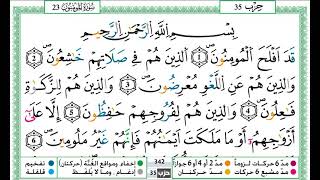 حِزْب 35 سُورَةُ المُؤْمِنُون 23
بِسْمِ اللَّهِ الرَّحْمَٰنِ الرَّحِيمِ
قَدَ اَفْلَحَ الْمُومِنُونَ 1 الَّذِينَ هُمْ فِي صَلَاتِهِمْ خَٰشِعُونَ 2
وَالَّذِينَ هُمْ عَنِ اللَّغْوِ مُعْرِضُونَ 3 وَالَّذِينَ هُمْ لِلزَّكَوٰةِ
فَٰعِلُونَ 4 وَالَّذِينَ هُمْ لِفُرُوجِهِمْ حَٰفِظُونَ 5 إِلَّا عَلَىٰ
أَزْوَٰجِهِمُ أَوْ مَا مَلَكَتَ اَيْمَٰنُهُمْ فَإِنَّهُمْ غَيْرُ مَلُومِينَ 6
مدّ 6 حركات لزوماً مدّ 2 أو 4 أو 6 جوازاً 342 إخفاء ومواقع الغُنَّة (حركتان) تفخيم
مدّ مشبع 6 حركات مدّ حركتان حزب 35 إدغام، وما لا يُلفَظ قلقلة